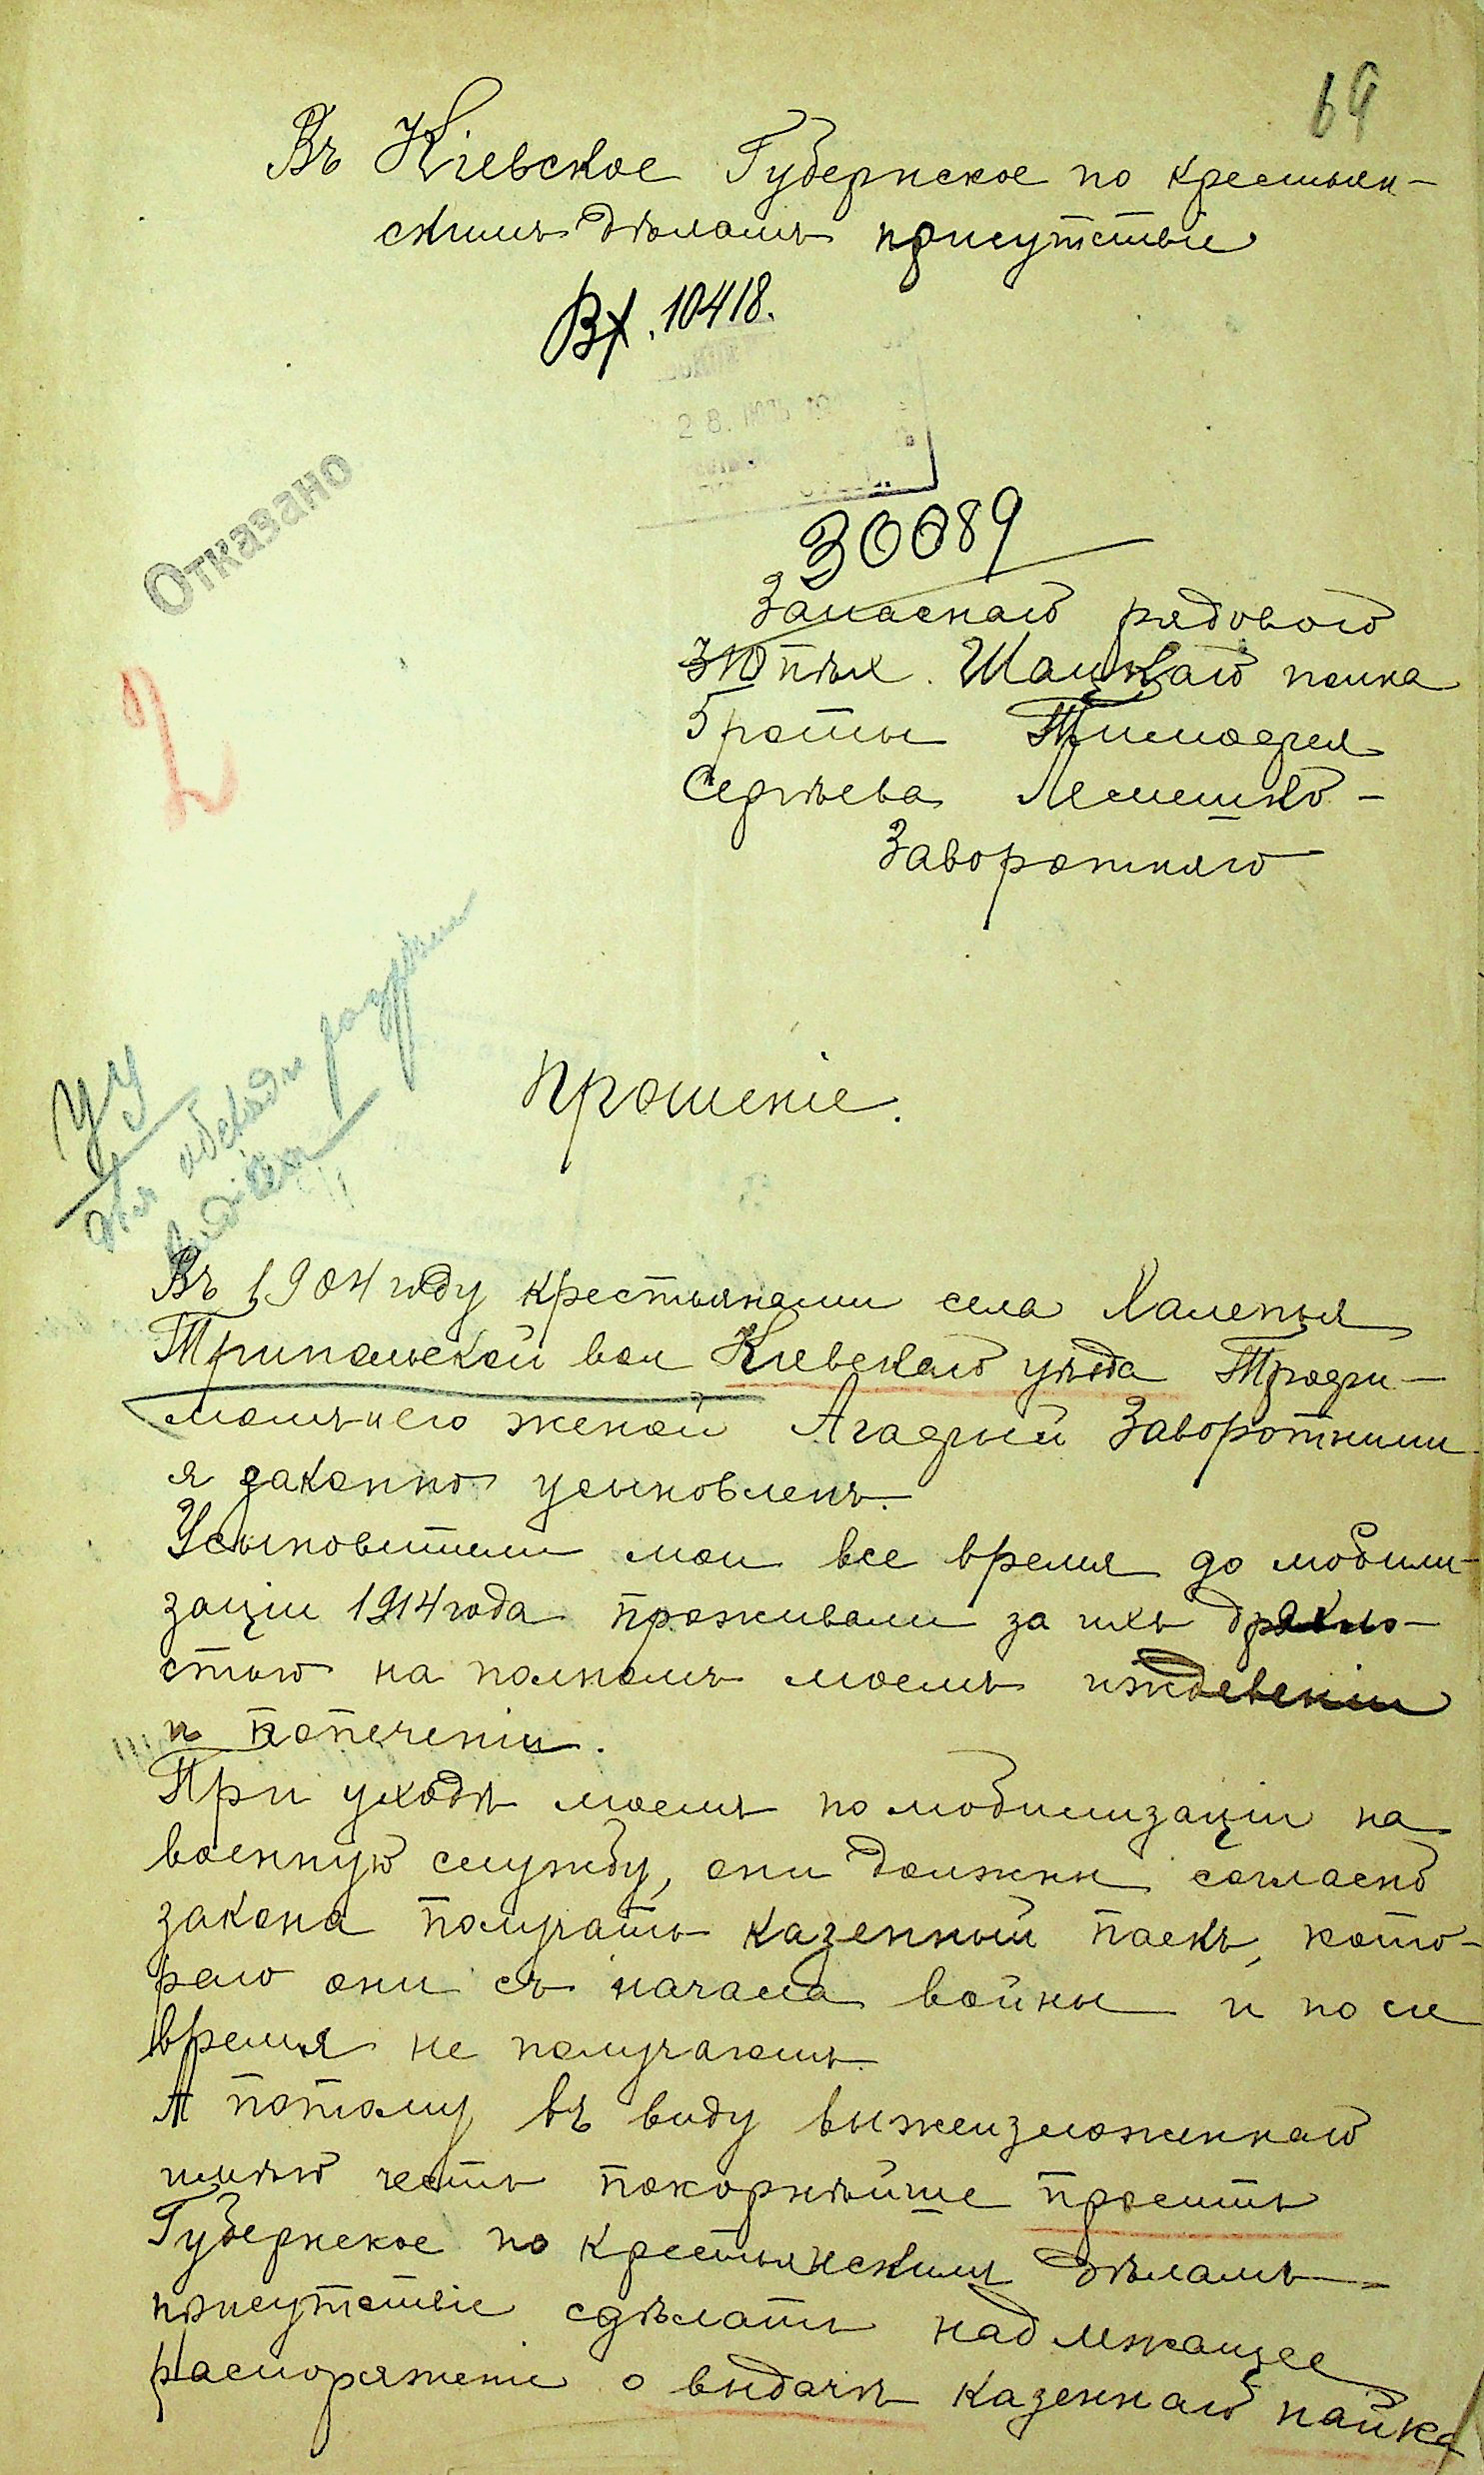 69
Въ Кіевское Губернское по крестьян-
скимъ дѣламъ присутствіе
Вх. 10418.
28.
30089
Отказано
Запаснаго рядового
пѣх. Шацкаго полка
5 роты Тимофея
Сергѣева Лемешко-
Заворотняго
2
УУ
для
Прошеніе.
Въ 1904 году крестьянами села Халепья
Трипольской вол Кіевскаго уѣзда Трофи-
момъ и его женой Агафьей Заворотними
я законно усыновленъ.
Усыновители мои все время до мобили-
заціи 1914 года проживали за ихъ дряхло-
стью на полномъ моемъ иждевеніи
и попеченіи.
При уходѣ моемъ по мобилизаціи на
военную службу, они должны согласно
закона получать казенный паекъ, кото-
раго они съ начала войны и по сіе
время не получаютъ.
А потому въ виду вышеизложеннаго
имѣю честь покорнѣйше просить
Губернское по крестьянскимъ дѣламъ
присутствіе сдѣлать надлежащее
распоряженіе о выдачѣ казеннаго пайка